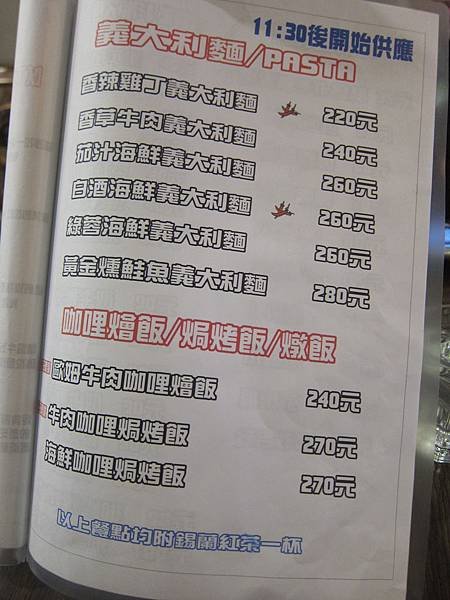 11:30後開始供應
義大利麵/PASTA
香辣雞丁義大利麵 220元
香草牛肉義大利麵 240元
茄汁海鮮義大利麵 260元
白酒海鮮義大利麵 260元
綠蓉海鮮義大利麵 260元
黃金燻鮭魚義大利麵 280元
咖哩燴飯/焗烤飯/燉飯
歐姆牛肉咖哩燴飯 240元
牛肉咖哩焗烤飯 270元
海鮮咖哩焗烤飯 270元
以上餐點均附錫蘭紅茶一杯